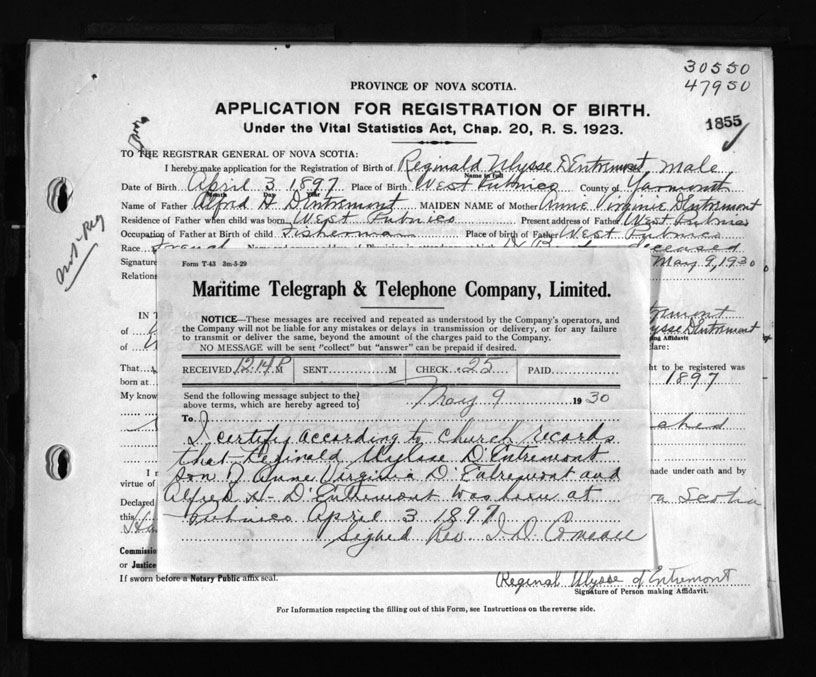 30550
47950
PROVINCE OF NOVA SCOTIA.
APPLICATION FOR REGISTRATION OF BIRTH.
Under the Vital Statistics Act, Chap. 20, R. S. 1923.
1855
TO THE REGISTRAR GENERAL OF NOVA SCOTIA:
I hereby make application for the Registration of Birth of Reginald Ulysse D'Entremont Male
Name in Full
Date of Birth April 3 1897 Place of Birth West Pubnico County of Yarmouth
Month Day Year
Name of Father Alfred H D'Entremont MAIDEN NAME of Mother Annie Virginie D'entremont
Residence of Father when child was born West Pubnico Present address of Father West Pubnico
Occupation of Father at Birth of child Fisherman Place of birth of Father West Pubnico
Race French deceased
Signature May 9, 1930
Relations
Not Reg
Form T-43 3m-5-29
Maritime Telegraph & Telephone Company, Limited.
NOTICE—These messages are received and repeated as understood by the Company's operators, and
the Company will not be liable for any mistakes or delays in transmission or delivery, or for any failure
to transmit or deliver the same, beyond the amount of the charges paid to the Company.
NO MESSAGE will be sent "collect" but "answer" can be prepaid if desired.
RECEIVED 12.14 P M SENT M CHECK .25 PAID
Send the following message subject to the
above terms, which are hereby agreed to May 9 1930
To
I certify according to church records
that Reginald Ulysse D'Entremont
son of Anne Virginia D'Entremont and
Alfred H- D'Entremont was born at
Pubnico April 3 1897
Signed Rev. J. D. Comeau
IN T
of
of
ntremont
lysse D'Entremont
ing Affidavit
lare:
That
ht to be registered was
born at
1897
My know
ched
I m
made under oath and by
virtue of
Declared
va Scotia
this
Commissio
or Justice
If sworn before a Notary Public affix seal.
Reginal Ulysse d'Entremont
Signature of Person making Affidavit.
For Information respecting the filling out of this Form, see Instructions on the reverse side.